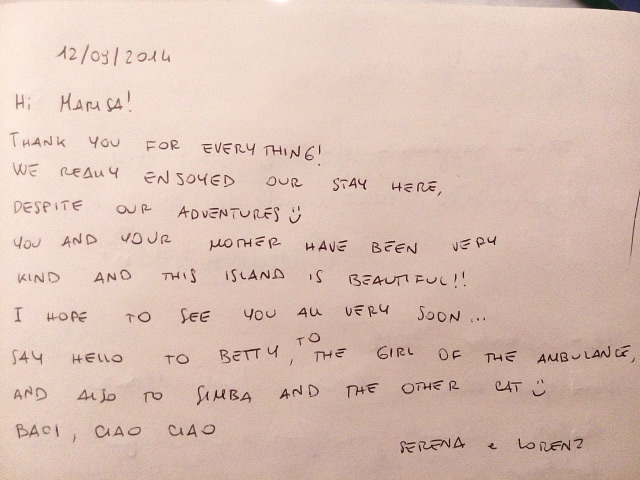 12/09/2014
Hi MARISA!
THANK YOU FOR EVERYTHING!
WE REALLY ENJOYED OUR STAY HERE,
DESPITE OUR ADVENTURES :)
YOU AND YOUR MOTHER HAVE BEEN VERY
KIND AND THIS ISLAND IS BEAUTIFUL!!
I HOPE TO SEE YOU ALL VERY SOON...
SAY HELLO TO BETTY, TO THE GIRL OF THE AMBULANCE,
AND ALSO TO SIMBA AND THE OTHER CAT :)
BACI, CIAO CIAO
SERENA e LORENZ